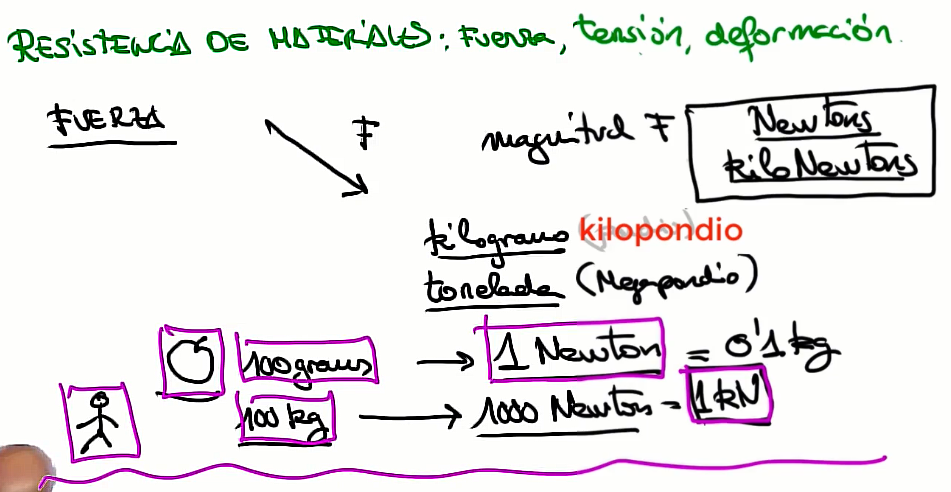 RESISTENCIA DE MATERIALES: Fuerza, tensión, deformación.
FUERZA
F
magnitud F
Newtons
kiloNewtons
kilogramo kilopondio
tonelada (Megapondio)
100 gramos → 1 Newton = 0'1 kg
100 kg → 1000 Newton = 1 kN